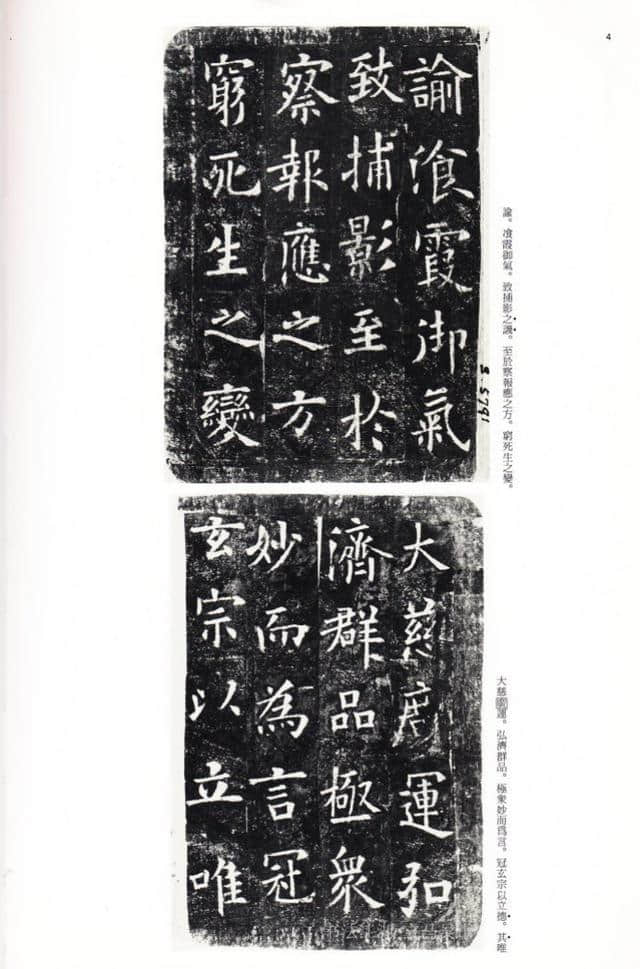 4
諭飡霞御氣
致捕影至於
察報應之方
窮死生之變
S.5791
諭。飡霞御氣。致捕影之譏。至於察報應之方。窮死生之變。
大慈運弘
濟群品極衆
妙而為言冠
玄宗以立唯
大慈運。弘濟群品。極衆妙而爲言。冠玄宗以立德。其唯